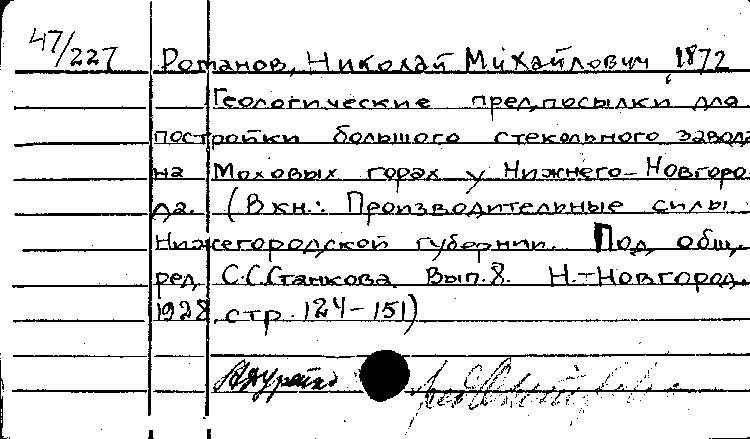 47/227 Романов, Николай Михайлович 1872
Геологические предпосылки для
постройки большого стекольного завода
на Моховых горах у Нижнего-Новгоро-
да. (В кн.: Производительные силы
Нижегородской губернии. Под общ.
ред. С.С.Станкова. Вып.8. Н.-Новгород.
1928, стр. 124-151)